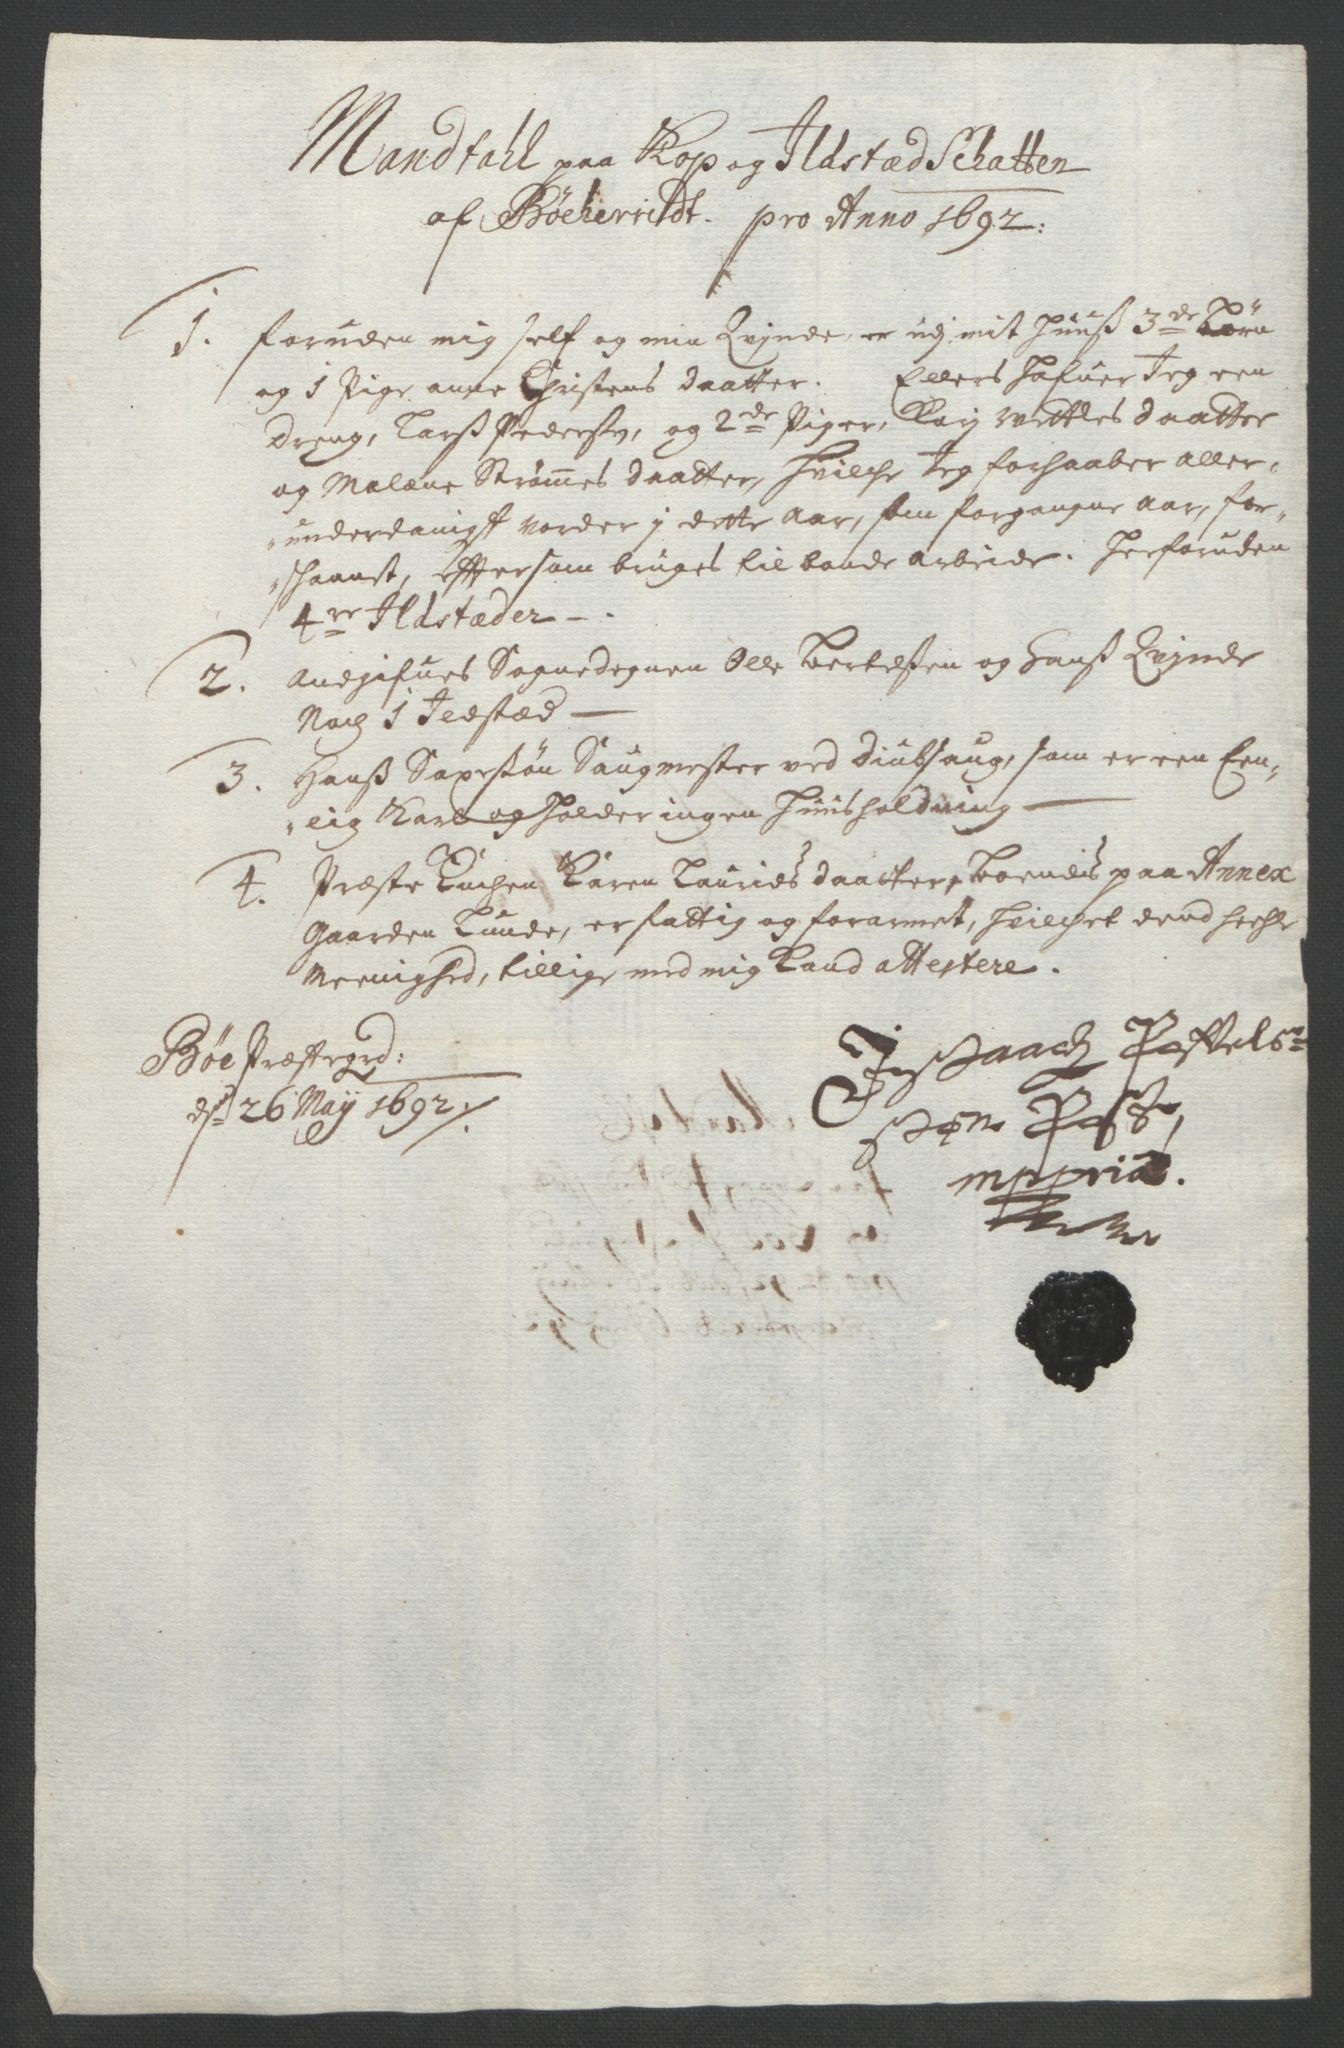 Mandtahl paa Kop og Ildstæd Schatten
af Bøeherridt. pro Anno 1692:
1. foruden mig self og min Qvinde, er udj mit Huuß 3de Börn
og 1 Pige anne Christens daatter. Ellers hafuer Jeg een
dreng, Larß Pederßøn, og 2de Piger, Karj Vettles daatter
og Malene Strømmes daatter, hvilche Jeg forhaaber aller-
-underdanigst vorder j dette aar, som forgangne aar, for-
-schaanet, effter som bruges til bonde arbeide. Herforuden
4re Ildstæder -.
2. Andgifues Sognedegnen Olle Bertelßen og hanß Qvinde
Noch 1 Ildstæd —
3. Hanß Saxestøn Saugmester ved Diubsaug, som er een Een-
-lig Karl og holder ingen Huusholdning —
4. Præste Enchen Karen Lauridsdaatter, Boendis paa Annex
Gaarden Lunde, er fattig og forarmet, hvilchet dend heele
Meenighed, tillige med mig kand attestere.
Bøe Præstegrd:
dn 26 Maij 1692 /.
Issaach
mppria.